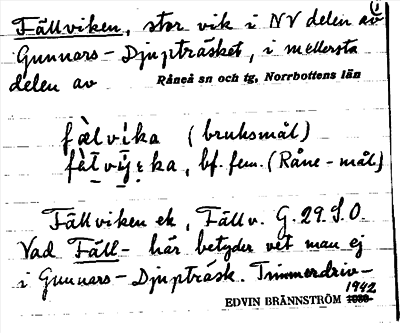 ①
Fällviken, stor vik i NV delen av
Gunnars-Djupträsket, i mellersta
delen av Råneå sn och tg, Norrbottens län
fàlvíka (bruksmål)
bf. fem. (Råne-mål)
Fällviken ek, Fällv. G. 29. S.O.
Vad Fäll- här betyder vet man ej
i Gunnars-Djupträsk. Timmerdriv-
1942
EDVIN BRÄNNSTRÖM